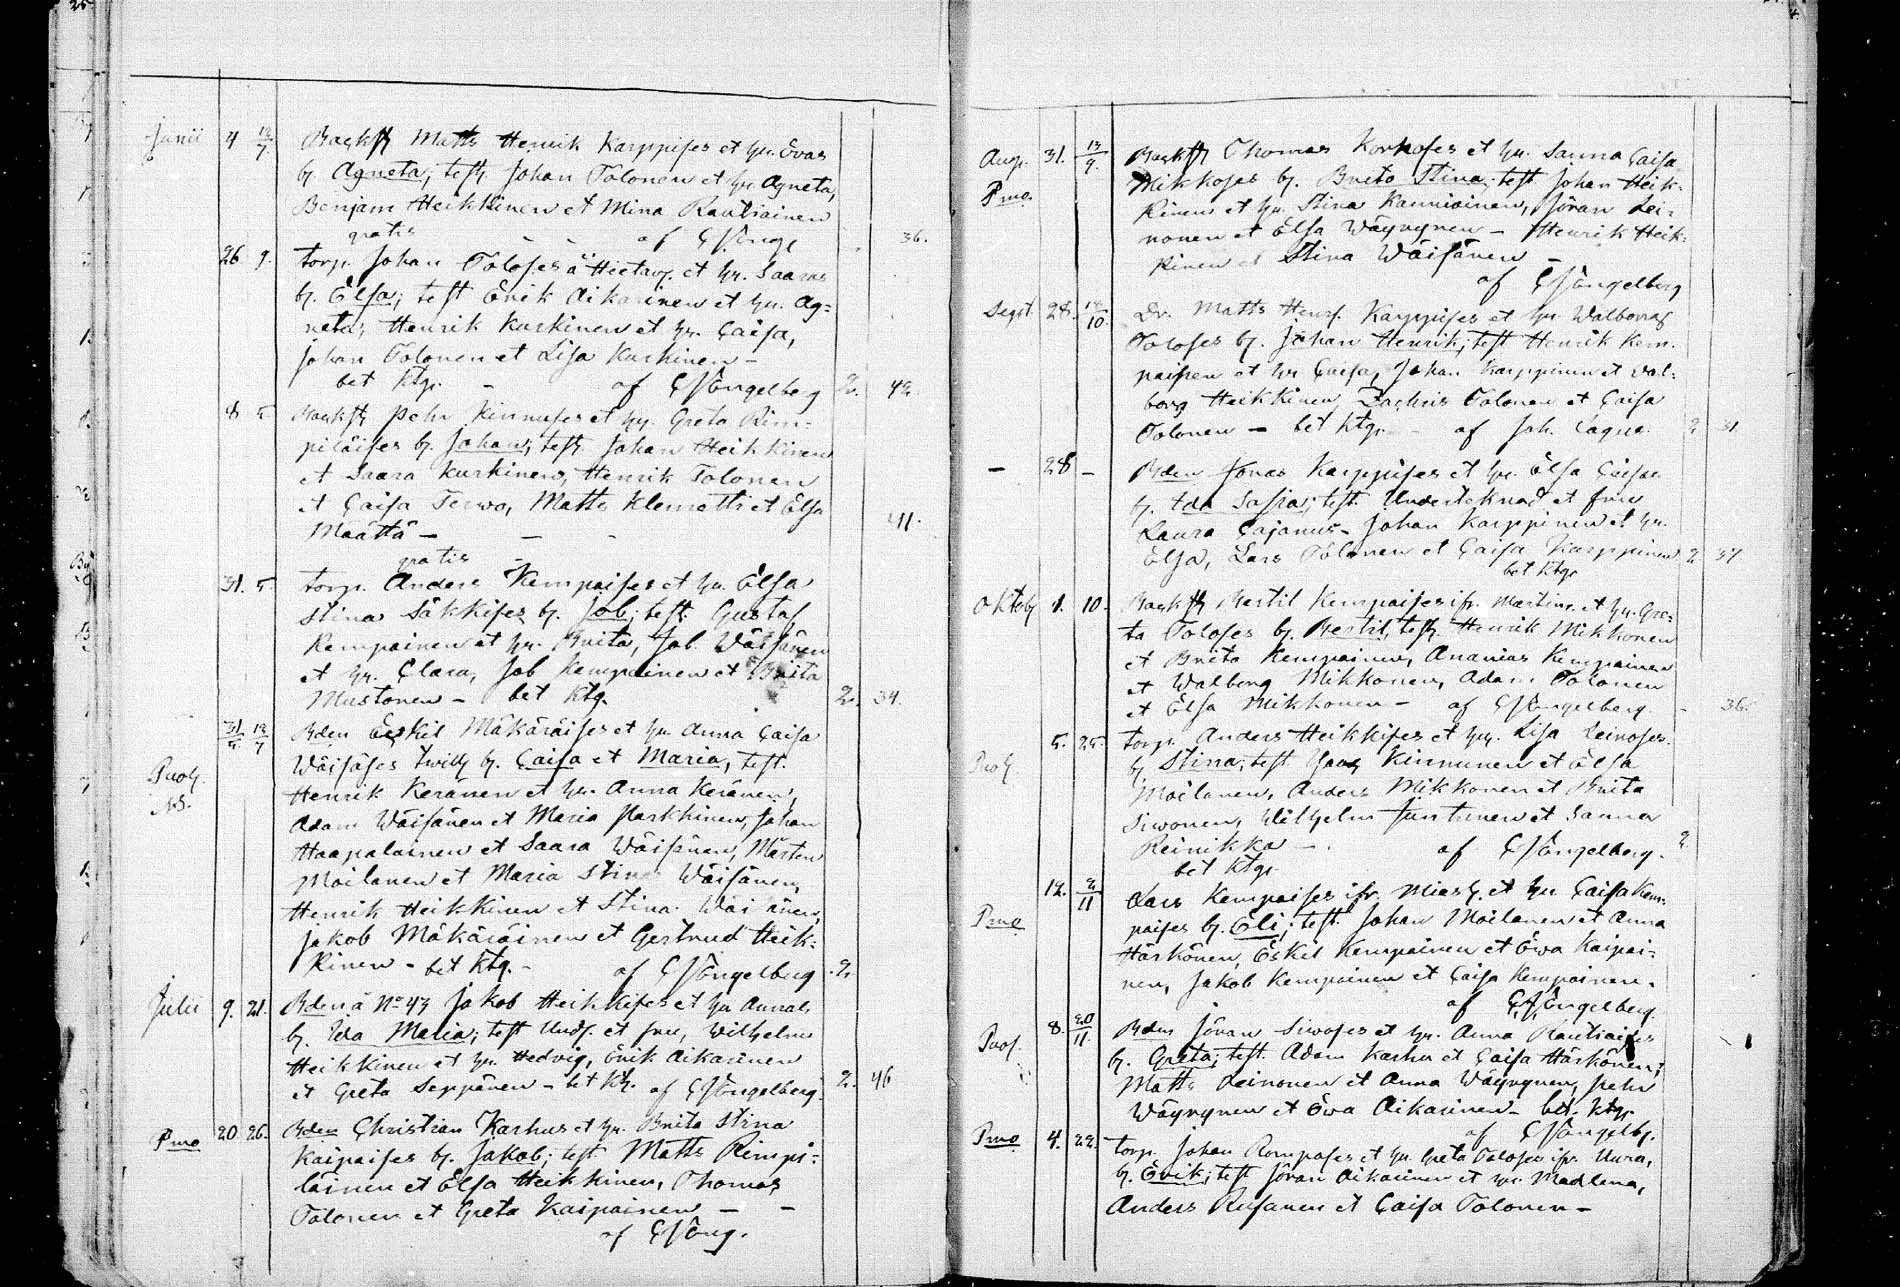 Junii 4 12/7 Backst. Matts Henrik Karppises et hu. Evas
b. Agneta; test. Johan Tolonen et hu. Agneta,
Benjam Heikkinen et Mina Rautiainen
gratis af CJEnge 36.
26 9. torp. Johan Toloses à Hietavg. et hu. Saaras
b. Elsa; test Erik Aikarinen et hu. Ag=
neta; Henrik Kurkinen et hu. Caisa,
Johan Tolonen et Lisa Kurkinen –
bet Ktg. – af CJEngelberg 2. 42.
8 5 Backst Pehr Kinnuses et hu. Greta Rim=
piläises b. Johan; test Johan Heikkinen
et Saara Kurkinen, Henrik Tolonen
et Caisa Terwo, Matts Klemetti et Elsa
Määttä – – - 41.
gratis
31. 5 torp. Anders Kempaises et hu. Elsa
Stina Säkkises b. Job; test. Gustaf
Kempainen et hu. Brita, Job Wäisänen
et hu. Clara, Job Kempainen et Brita
Mustonen – bet Ktg. 2. 34.
31/5 12/7 Bden Eskil Mäkäräises et hu Anna Caisa
Wäisäses twill. b. Caisa et Maria, test.
Henrik Keränen et hu. Anna Keränen;
Adam Wäisänen et Maria Parkkinen, Johan
Haapalainen et Saara Wäisänen, Mårten
Moilanen et Maria Stina Wäisänen,
Henrik Heikkinen et Stina Wäisänen,
Jakob Mäkäräinen et Gertrud Heik=
kinen – bet Ktg. – af CJEngelberg 2.
Julii 9. 21. Bden à No 43 Jakob Heikkises et hu Annas
b. Ida Maria; test Unds. et fru, Wilhelm
Heikkinen et hu. Hedvig, Erik Aikarinen
et Greta Seppänen – bet Ktg. af CJEngelberg 2. 46
Puo 20 26. Bden Christian Karhus et hu. Brita Stina
Kaipaises b. Jakob; test Matts Rimpi=
läinen et Elsa Heikkinen, Thomas
Tolonen et Greta Kaipainen – –
af CJEng.
Aug. 31. 13/9. Backst Thomas Korhoses et hu. Sanna Caisa
Puo Mikkoses b. Brita Stina; test Johan Heik=
kinen et hu. Stina Kauniainen, Jöran Lei=
nonen et Elsa Wäyrynen – Henrik Heik=
kinen et Stina Wäisänen –
af CJEngelberg
Sept. 28. 12/10. Dr. Matts Henr. Karppises et hu Walborgs
Toloses b. Johan Henrik; test Henrik Kem=
painen et hu Caisa, Johan Karppinen et Val=
borg Heikkinen, Zachris Tolonen et Caisa
Tolonen – bet Ktg. – af Joh. Cagus. 2 31.
– 28 – Bden Jonas Karppises et hu. Elsa Caisas
b. Ida Sofia; test. Undertecknad et fru
Laura Cajanus – Johan Karppinen et hu.
Elsa, Lars Tolonen et Caisa Karppinen 2 37.
bet Ktg.
Oktob 1. 10. Backst Bertil Kempaises ifr. Martin. et hu. Gre=
ta Toloses b. Bertil; test. Henrik Mikkonen
et Brita Kempainen, Ananias Kempainen
et Walborg Mikkonen, Adam Tolonen
et Elsa Mikkonen – af CJEngelberg. - 36.
5. 25. torp. Anders Heikkises et hu. Lisa Leinoses.
b. Stina; test Kinnunen et Elsa
Moilanen, Anders Mikkonen et Brita
Siwonen, Wilhelm Juntunen et Sanna
Reinikka – . af CJEngelberg. 2
bet Ktg.
12. 2/11 Lars Kempaises ifr. et hu Caisa Kem=
Puo paises b. Eli; test Johan Moilanen et Anna
Härkönen, Eskil Kempainen et Ewa Kaipai=
nen, Jakob Kempainen et Caisa Kempainen.
af CJEngelberg.
8. 20/11 Bden Jöran Siwoses et hu. Anna Rautiaises
b. Greta; test. Adam Karhu et Caisa Härkönen;
Matts Leinonen et Anna Wäyrynen, Pehr
Wäyrynen et Ewa Aikarinen – bet. Ktg.
af CJEngelbg.
Puo 4. 22. torp. Johan Rompases et hu Greta Toloses ifr. Uura,
b. Erik; test Jöran Aikarinen et hu. Madlena,
Anders Rusanen et Caisa Tolonen –